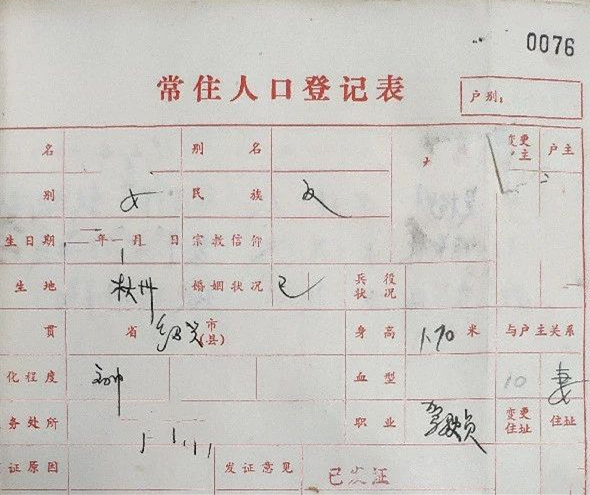 0076
常住人口登记表
户别:
名 别名 变更 户主
别 女 民族 汉
生日期 年 月 日 宗教信仰
生地 杭州 婚姻状况 已 兵役状况
贯 省 绍兴 市(县) 身高 1.70 米 与户主关系
化程度 初中 血型 10 妻
务处所 职业 驾驶员 变更住址 住址
证原因 发证意见 已发证